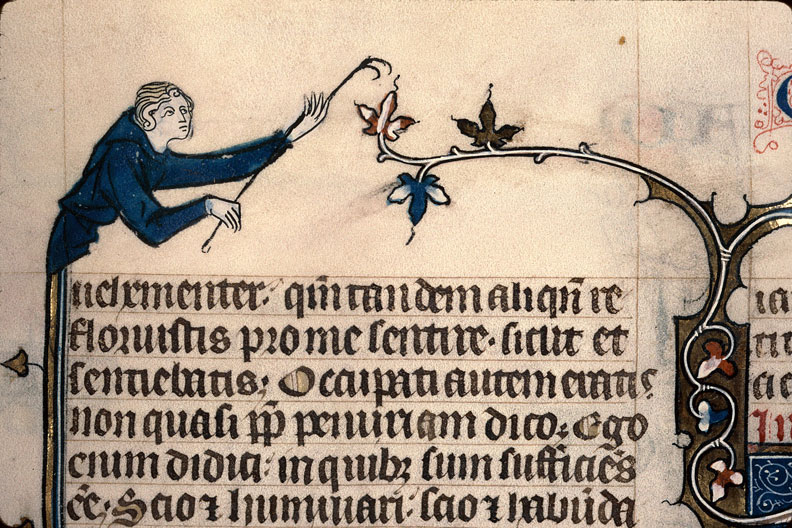 uehementer: qm̄ tandem aliqn̄ re
floruistis pro me sentire. sicut et
sentiebatis: Occupati autem eratis.
non quasi pp̄ penuriam dico: Ego
enim didici: in quibꝫ sum sufficiēs
eē. Scio ⁊ humiliari. scio ⁊ habūda